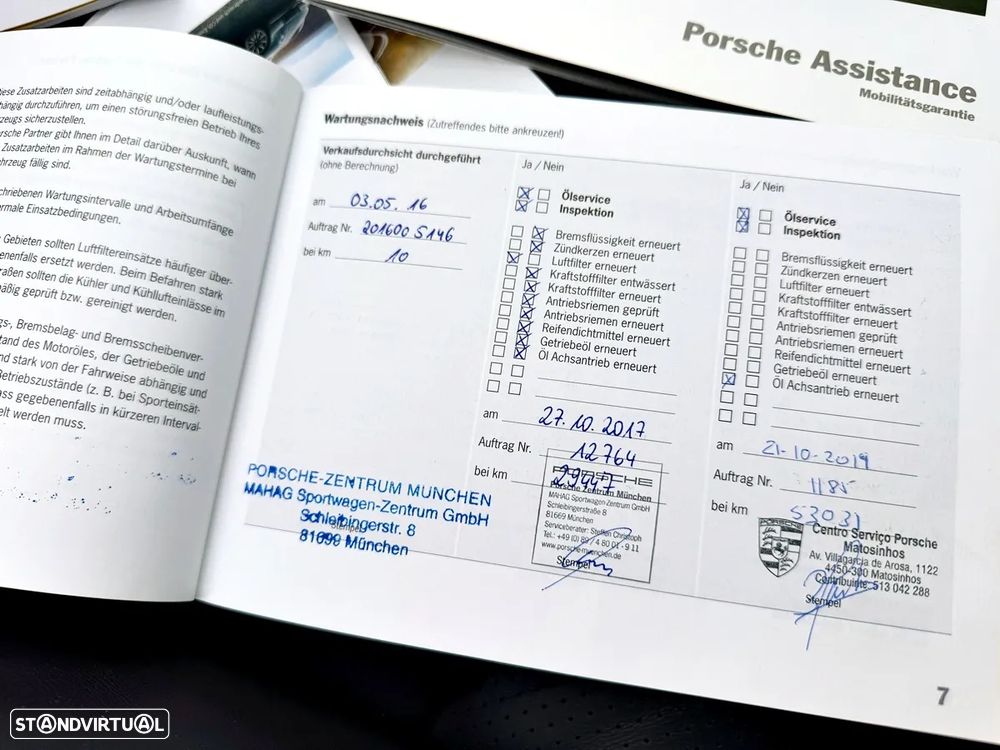 Porsche Assistance
Mobilitätsgarantie
Diese Zusatzarbeiten sind zeitabhängig und/oder laufleistungs-
hängig durchzuführen, um einen störungsfreien Betrieb Ihres
zeugs sicherzustellen.
rsche Partner gibt Ihnen im Detail darüber Auskunft, wann
Zusatzarbeiten im Rahmen der Wartungstermine bei
hrzeug fällig sind.
chriebenen Wartungsintervalle und Arbeitsumfänge
ormale Einsatzbedingungen.
Gebieten sollten Luftfiltereinsätze häufiger über-
enenfalls ersetzt werden. Beim Befahren stark
raßen sollten die Kühler und Kühllufteinlässe im
mäßig geprüft bzw. gereinigt werden.
gs-, Bremsbelag- und Bremsscheibenver-
stand des Motoröles, der Getriebeöle und
nd stark von der Fahrweise abhängig und
Betriebszustände (z. B. bei Sporteinsät-
ass gegebenenfalls in kürzeren Interval-
elt werden muss.
Wartungsnachweis (Zutreffendes bitte ankreuzen!)
Verkaufsdurchsicht durchgeführt
(ohne Berechnung)
am 03.05.16
Auftrag Nr. 201600 5146
bei km 10
PORSCHE-ZENTRUM MÜNCHEN
MAHAG Sportwagen-Zentrum GmbH
Schleibingerstr. 8
Stempel
81699 München
Ja / Nein
Ölservice
Inspektion
Bremsflüssigkeit erneuert
Zündkerzen erneuert
Luftfilter erneuert
Kraftstofffilter entwässert
Kraftstofffilter erneuert
Antriebsriemen geprüft
Antriebsriemen erneuert
Reifendichtmittel erneuert
Getriebeöl erneuert
Öl Achsantrieb erneuert
am 27.10.2017
Auftrag Nr. 12764
bei km 29447
PORSCHE
Porsche Zentrum München
MAHAG Sportwagen-Zentrum GmbH
Schleibingerstraße 8
81669 München
Serviceberater: Steffen Christoph
Tel.: +49 (0) 89 / 4 80 01 - 9 11
www.porsche-muenchen.de
Stempel
Ja / Nein
Ölservice
Inspektion
Bremsflüssigkeit erneuert
Zündkerzen erneuert
Luftfilter erneuert
Kraftstofffilter entwässert
Kraftstofffilter erneuert
Antriebsriemen geprüft
Antriebsriemen erneuert
Reifendichtmittel erneuert
Getriebeöl erneuert
Öl Achsantrieb erneuert
am 21-10-2019
Auftrag Nr. 1185
bei km 52031
PORSCHE
Centro Serviço Porsche
Matosinhos
Av. Villagarcia de Arosa, 1122
4450-300 Matosinhos
Contribuinte: 513 042 288
Stempel
7
STANDVIRTUAL